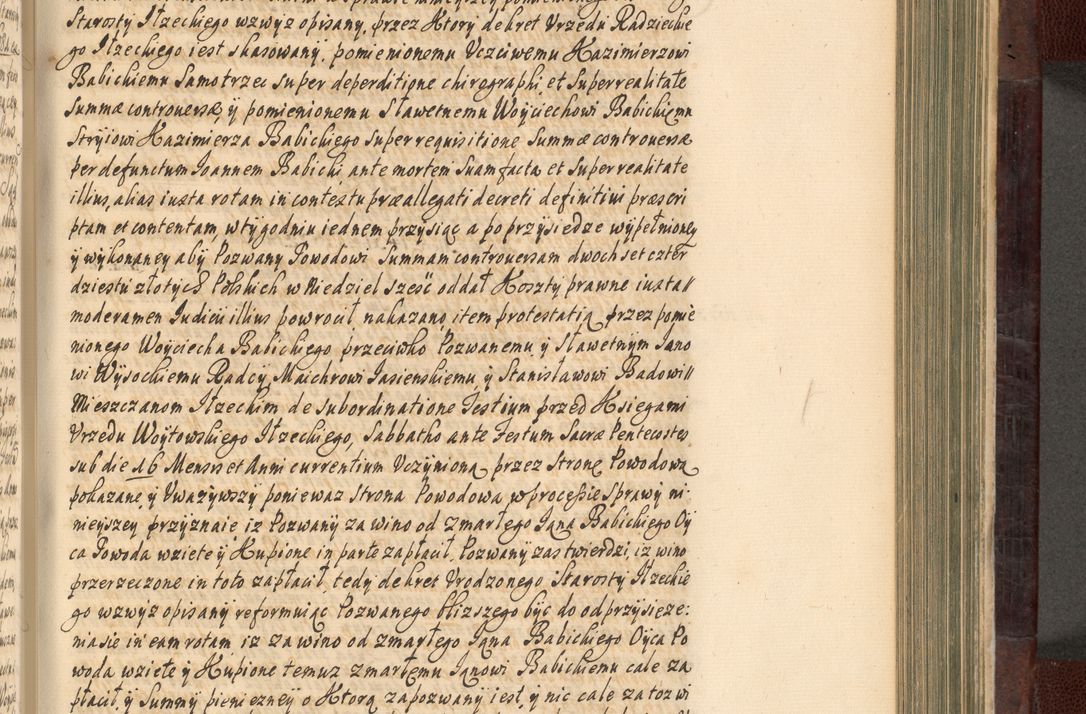 Starosty Iłzeckiego wzwyż opisany, przez Ktory dekret Vrzędu Radzieckie
go Iłzeckiego iest skasowany, pomienionemu Vczciwemu Kazimierzowi
Babickiemu Samotrzec super deperditione chirographi, et Super realitate
Summæ controuersæ, ÿ pomienionemu Sławetnemu Woyciechowi Babickiemu
Stryiowi Kazimierza Babickiego super requisitione Summæ controuersæ
per defunctum Ioannem Babicki ante mortem Suam facta et Super realitate
illius, alias iuxta rotam in contextu præallegati decreti definitiui præscri
ptam et contentam, w tygodniu iednem przysiąc a po przysiędze wypełnioney
ÿ wykonaney aby Pozwany Powodowi Summam controuersam dwochset czter
dziestu złotych Polskich w Niedziel sześć oddał Koszty prawne iuxta
moderamen Iudicii illius powrocił nakazano, item protestatią przez pomie
nionego Woyciecha Babickiego przeciwko Pozwanemu, ÿ Sławetnym Iano
wi Wysockiemu Radcy, Maichrowi Iasienskiemu, ÿ Stanisławowi Badowi
Mieszczanom Iłzeckim de subordinatione Testium przed Ksiegami
Vrzedu Woytowskiego Iłzeckiego, Sabbatho ante Festum Sacræ Pentecostes
sub die 16 Mensis et Anni currentium Vczynioną przez Stronę Powodową
pokazane, ÿ Vważywszy poniewaz strona Powodowa w processie sprawy ni
nieyszey przyznaie, iz Pozwany za wino od zmarłego Iana Babickiego Oy
ca Powoda wziete ÿ Kupione in parte zapłacił, Pozwany zas twierdzi, iz wino
przerzeczone in toto zapłacił, tedy dekret Vrodzonego Starosty Iłzeckie
go wzwyz opisany reformuiąc Pozwanego blizszego być do odprzysięze:
nia sie in eam rotam, iz za wino od zmarłego Iana Babickiego Oyca Po
woda wziete ÿ Kupione temuz zmarłemu Ianowi Babickiemu cale za
płacił, ÿ Summy pieniezney o Ktorą zapozwany iest, ÿ nic cale za toz wi